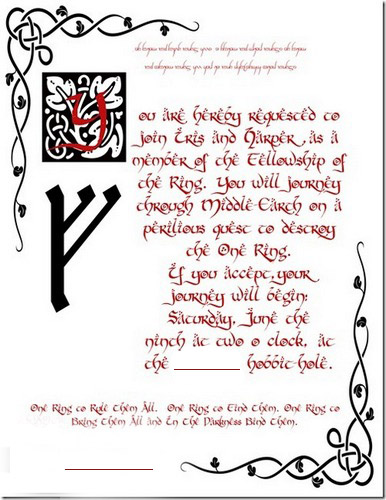 You are hereby requested to
join Iris and Harper, as a
member of the Fellowship of
the Ring. You will journey
through Middle-Earth on a
perilious quest to destroy
the One Ring.
If you accept, your
journey will begin:
Saturday, June the
ninth at two o clock, at
the hobbit-hole.
One Ring to Rule Them All. One Ring to Find Them, One Ring to
Bring Them All and In The Darkness Bind Them.